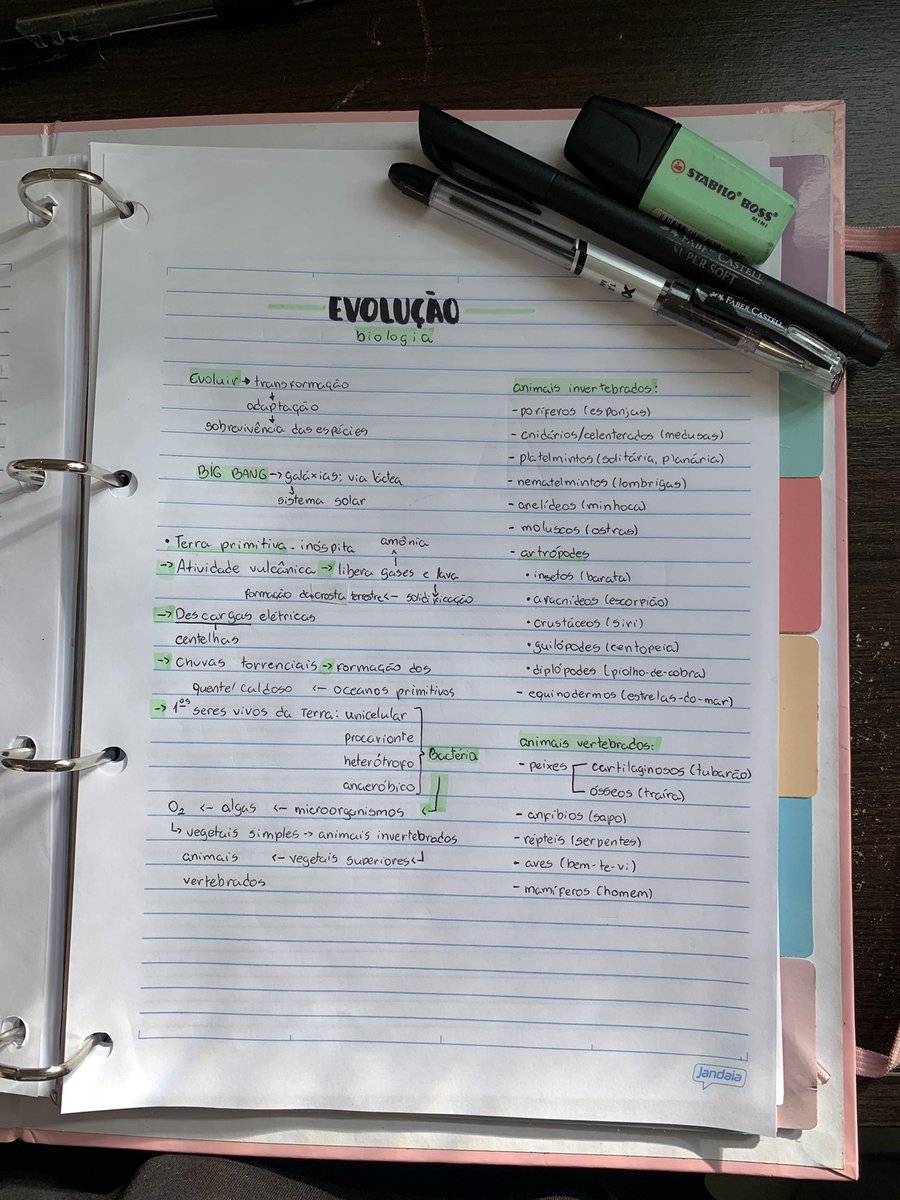 STABILO® BOSS®
MINI
FABER-CASTELL
SUPER SOFT
FABER-CASTELL
EVOLUÇÃO
biologia
Evoluir → transformação
↓
adaptação
↓
sobrevivência das espécies
BIG BANG → galáxias: via láctea
↓
sistema solar
• Terra primitiva - inóspita
amônia
^
→ Atividade vulcânica → libera gases e lava
↓
formação da crosta terrestre <- solidificação
→ Descargas elétricas
centelhas
→ Chuvas torrenciais → formação dos
quente/caldoso <- oceanos primitivos
→ 1ºs seres vivos da Terra: unicelular
procarionte
heterótrofo
anaeróbico
Bactéria
O2 <- algas <- microorganismos <-
↳ vegetais simples → animais invertebrados
animais <- vegetais superiores <-
vertebrados
animais invertebrados:
- poríferos (esponjas)
- cnidários/celenterados (medusas)
- platelmintos (solitária, planária)
- nematelmintos (lombrigas)
- anelídeos (minhoca)
- moluscos (ostras)
- artrópodes
• insetos (barata)
• aracnídeos (escorpião)
• crustáceos (siri)
• quilópodes (centopeia)
• diplópodes (piolho-de-cobra)
- equinodermos (estrelas-do-mar)
animais vertebrados:
- peixes
cartilaginosos (tubarão)
ósseos (traíra)
- anfíbios (sapo)
- répteis (serpentes)
- aves (bem-te-vi)
- mamíferos (homem)
jandaia